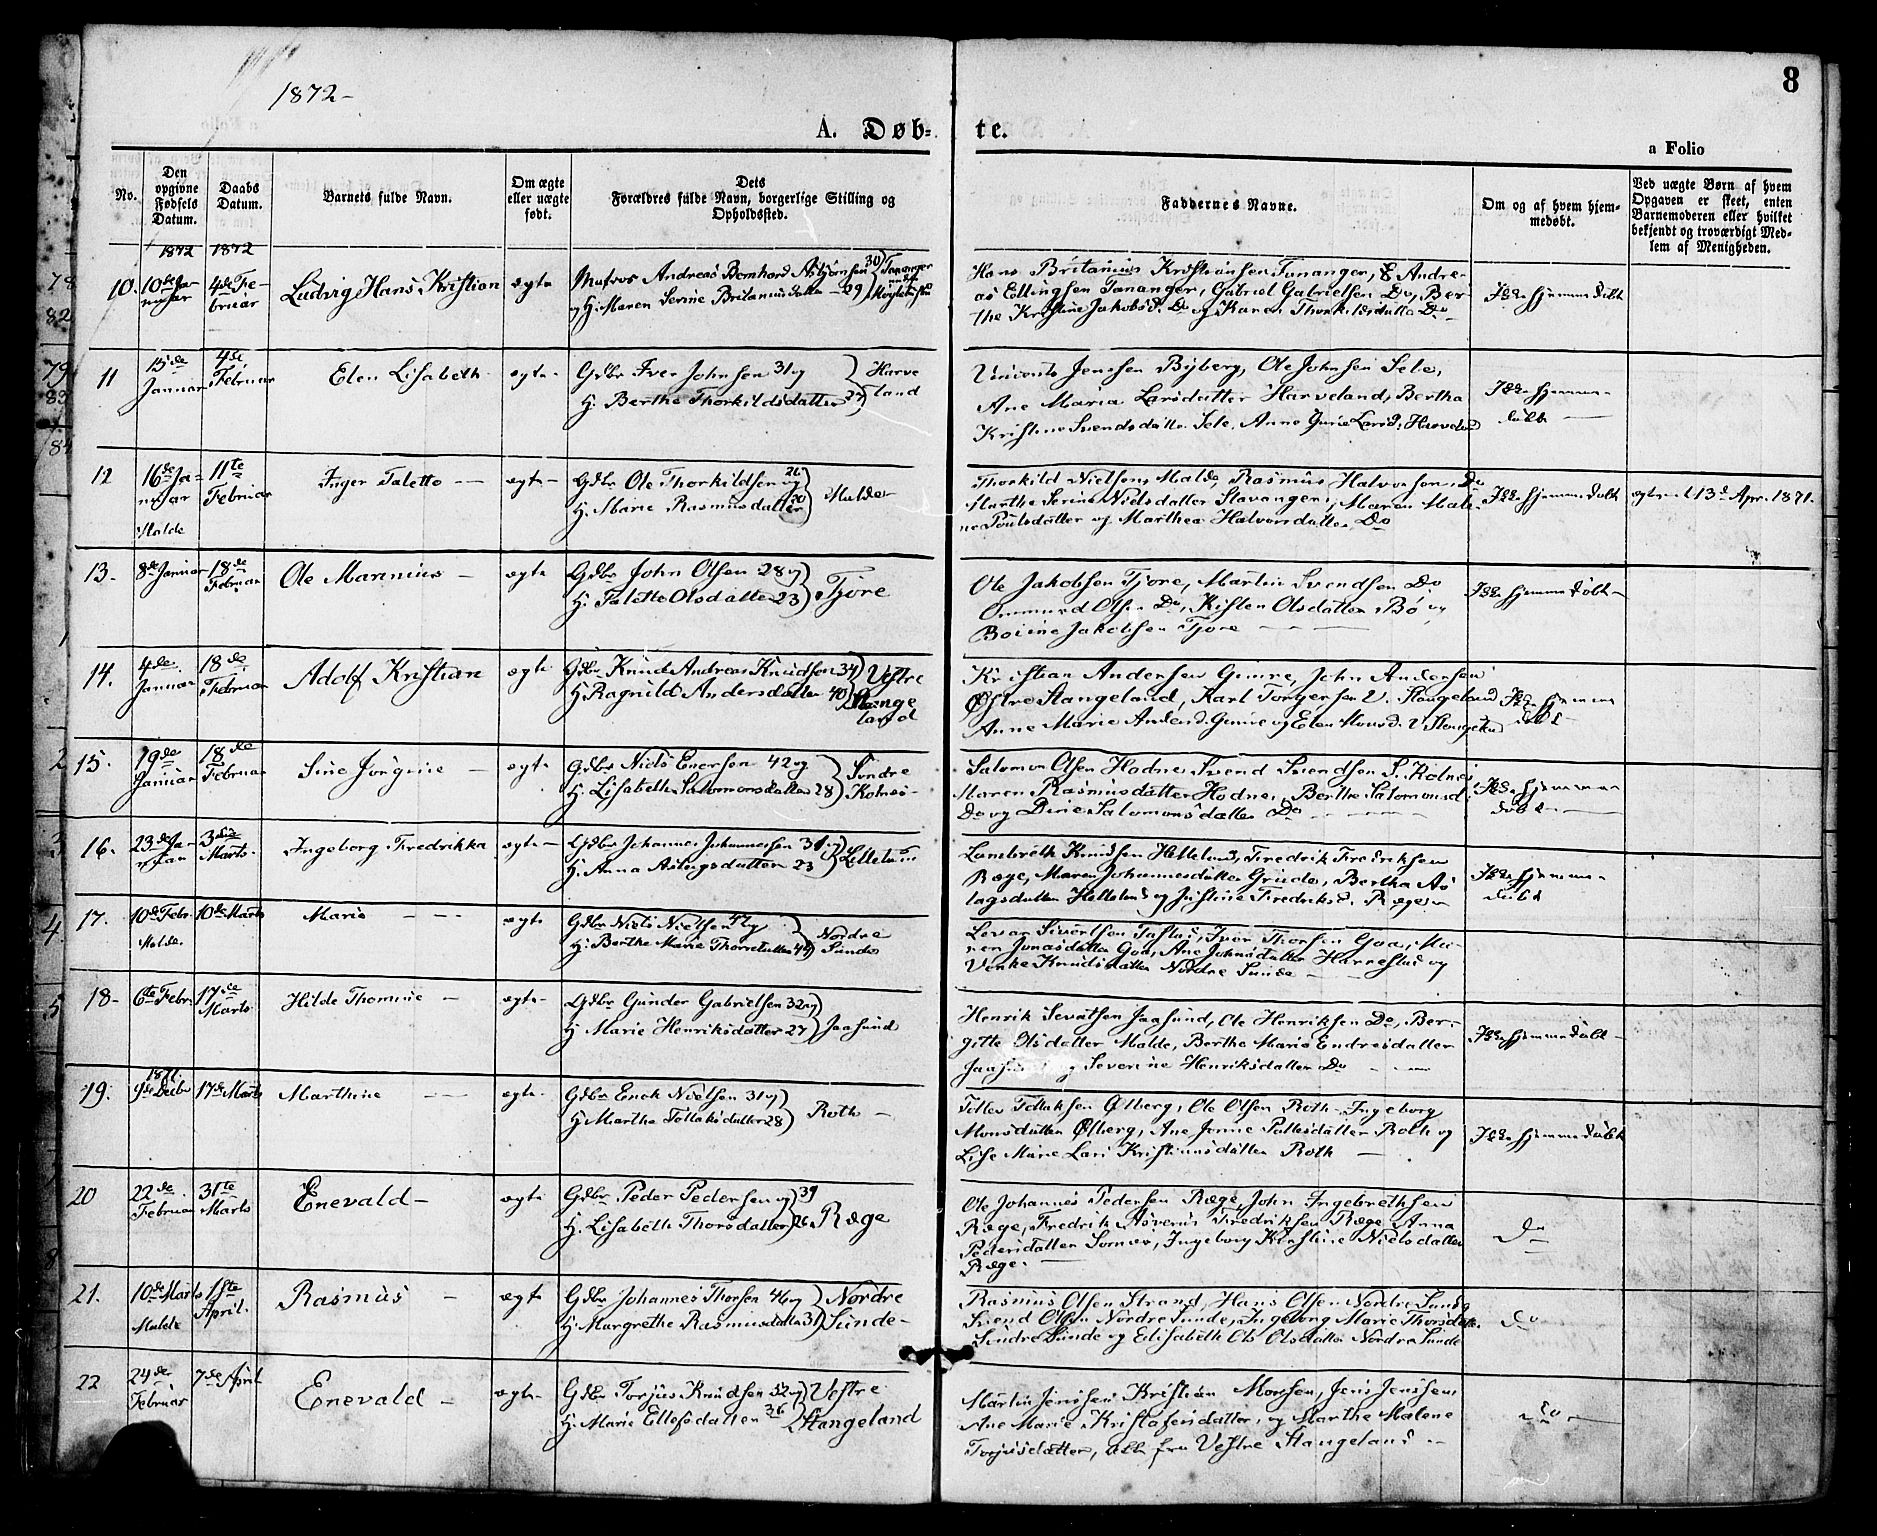 8
1872-
A. Døb- te.
a Folio
No.
Den opgivne Fødsels Datum.
Daabs Datum.
Barnets fulde Navn.
Om ægte eller uægte født.
Dets Forældres fulde Navn, borgerlige Stilling og Opholdssted.
Faddernes Navne.
Om og af hvem hjemmedøbt.
Ved uægte Børn af hvem Opgaven er skeet, enten Barnemoderen eller hvilket bekjendt og troværdigt Medlem af Menigheden.
1872 1872
10. 10de Januar 4de Februar Ludvig Hans Kristian ægte Matros Andreas Bernhard Asbjørnsen 30 Tananger
og H. Maren Serine Britaniusdatter - 29
Hans Britanius Kristiansen Tananger, Andre-
as Ellingsen Tananger, Gabriel Gabrielsen Do, Ber-
the Kristine Jakobsd. Do og Karen Thorkildsdatter Do
Ikke hjemmedøbt
11 15de Januar 4de Februar Elen Lisabeth ægte Gdbr Iver Johnsen 31 og
H. Berthe Thorkildsdatter 27 Harveland
Vincents Jenssen Byberg, Ole Johnsen Sele,
Ane Maria Larsdatter Harveland, Bertha
Kristine Svendsdatter Sele, Anne Gurie Larsd. Harveland
Ikke hjemmedøbt
12 16de Januar 11te Februar Inger Talette ægte Gdbr Ole Thorkildsen og 26
H. Marie Rasmusdatter 20 Malde
Malde
Thorkild Nielsen Malde, Rasmus Halvorsen Do
Marthe Serine Nielsdatter Stavanger, Maren Male-
ne Poulsdatter og Marthea Halvorsdatter Do
Ikke hjemmedøbt ægtev. 13de Apr. 1871.
13. 8de Januar 18de Februar Ole Marinius ægte Gdbr John Olsen 28 og
H. Talette Olsdatter 23 Tjore
Ole Jakobsen Tjore, Martin Svendsen Do
Ommund Olsen Do, Kisten Olsdatter Bø og
Boline Jakobsen Tjore
Ikke hjemmedøbt
14. 4de Januar 18de Februar Adolf Kristian ægte Gdbr Knud Andreas Knudsen 34
H. Ragnild Andersdatter 40 Vestre Stangeland
Kristian Andersen Gimre, John Andersen
Østre Stangeland, Karl Torgersen V. Stangeland
Anne Marie Andersd. Gimre og Elen Monsd. V. Stangeland
Ikke hjemmedøbt
15. 19de Januar 18de Februar Sine Jørgine ægte Gdbr Niels Enersen 42 og
H. Lisabeth Salomonsdatter 28 Søndre Kolnes
Salomon Olsen Hodne, Svend Svendsen S. Kolnes
Maren Rasmusdatter Hodne, Berthe Salomonsd.
Do og Dine Salomonsdatter Do
Ikke hjemmedøbt
16. 23de Januar 3die Marts Ingeborg Fredrikka ægte Gdbr Johannes Johannessen 31 og
H. Anna Aslagsdatter 23
Lambreth Knudsen Helleland, Fredrik Fredriksen
Ræge, Maren Johannesdatter Grude, Bertha As-
lagsdatter Helleland og Justine Fredriksd. Ræge
Ikke hjemmedøbt
17. 10de Febr. 10de Marts Marie ægte Gdbr Niels Nielsen 47 og
Malde H. Berthe Marie Thoresdatter 44 Nordre Sunde
Levar Sivertsen Tasted, Iver Thorsen Goa, Ma-
ren Jonasdatter Goa, Ane Johnsdatter Harrestad og
Venke Knudsdatter Nordre Sunde
18 6te Febr. 17de Marts Hilde Thomine ægte Gdbr Gunder Gabrielsen 32 og
H Marie Henriksdatter 27 Jaasund
Henrik Sevatsen Jaasund, Ole Henriksen Do, Ber-
gitte Olsdatter Malde, Berthe Marie Endresdatter
Severine Henriksdatter Do
Ikke hjemmedøbt
19. 1871. 9de Decbr 17de Marts Marthine ægte Gdbr Enok Nielsen 31 og
H Marthe Tollaksdatter 28 Roth
Tollak Tollaksen Ølberg, Ole Olsen Roth, Ingeborg
Monsdatter Ølberg, Ane Jonne Pallesdatter Roth og
Lise Marie Kristiansdatter Roth
Ikke hjemmedøbt
20 22de Februar 31te Marts Enevald ægte Gdbr Peder Pedersen og 39
H. Lisabeth Thorsdatter 26 Ræge
Ole Johannes Pedersen Ræge, John Ingebrethsen
Ræge, Fredrik Asverus Fredriksen Ræge, Anna
Pedersdatter Somes, Ingeborg Kirstine Nielsdatter
Ræge
do
21. 10de Marts 1ste April. Rasmus ægt Gdbr Johannes Thorsen 46 og
Malde H. Margrethe Rasmusdatter 37 Nordre Sunde
Rasmus Olsen Strand, Hans Olsen Nordre Sunde
Svend Olsen Nordre Sunde, Ingeborg Marie Thorsdatter
Søndre Sunde og Elisabeth Olsdatter Nordre Sunde
do
22 24de Februar 7de April Enevald ægte Gdbr Torjus Knudsen 52 og
H. Marie Ellefsdatter 36 Vestre Stangeland
Martin Jenssen, Kristian Monsen, Jens Jenssen,
Ane Marie Kristofersdatter, og Marthe Malene
Torjusdatter, alle fra Vestre Stangeland
do